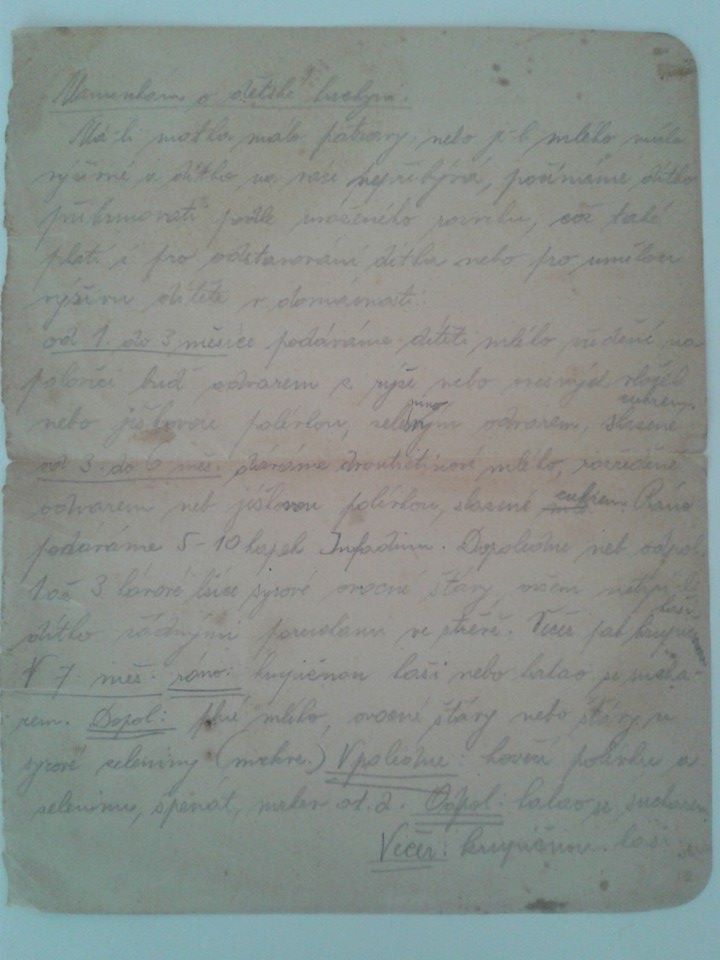 Maminkám o dětské kuchyni.
Má-li matka málo potravy, nebo je-li mléko málo
výživné a dítko na váze nepřibývá, počínáme dítko
přikrmovati podle uváženého rozvrhu, což také
platí i pro odstavování dítka nebo pro umělou
výživu dítěte v domácnosti.
od 1. do 3 měsíce podáváme dítěti mléko, ředěné na
polovici buď odvarem z rýže nebo ovesných vloček
nebo jíškovou polévkou, zeleným odvarem, slazené cukrem
od 3. do 6 měs. dáváme dvoutřetinové mléko, rozředěné
odvarem neb jíškovou polévkou, slazené cukrem. Ráno
podáváme 5-10 kapek Infadinu. Dopoledne neb odpol.
1 až 3 kávové lžíce syrové ovocné šťávy ovšem netrpí-li
dítko žádnými poruchami ve střevě. Večer pak krupič. kaši
V 7 měs: ráno: krupičnou kaši nebo kakao se sucha-
rem. Dopol: plné mléko, ovocné šťávy nebo šťávy z
syrové zeleniny (mrkve.) V poledne: hovězí polévku a
zeleninu, špenát, mrkev at.d. Odpol: kakao se sucharem
Večer: krupičnou kaši